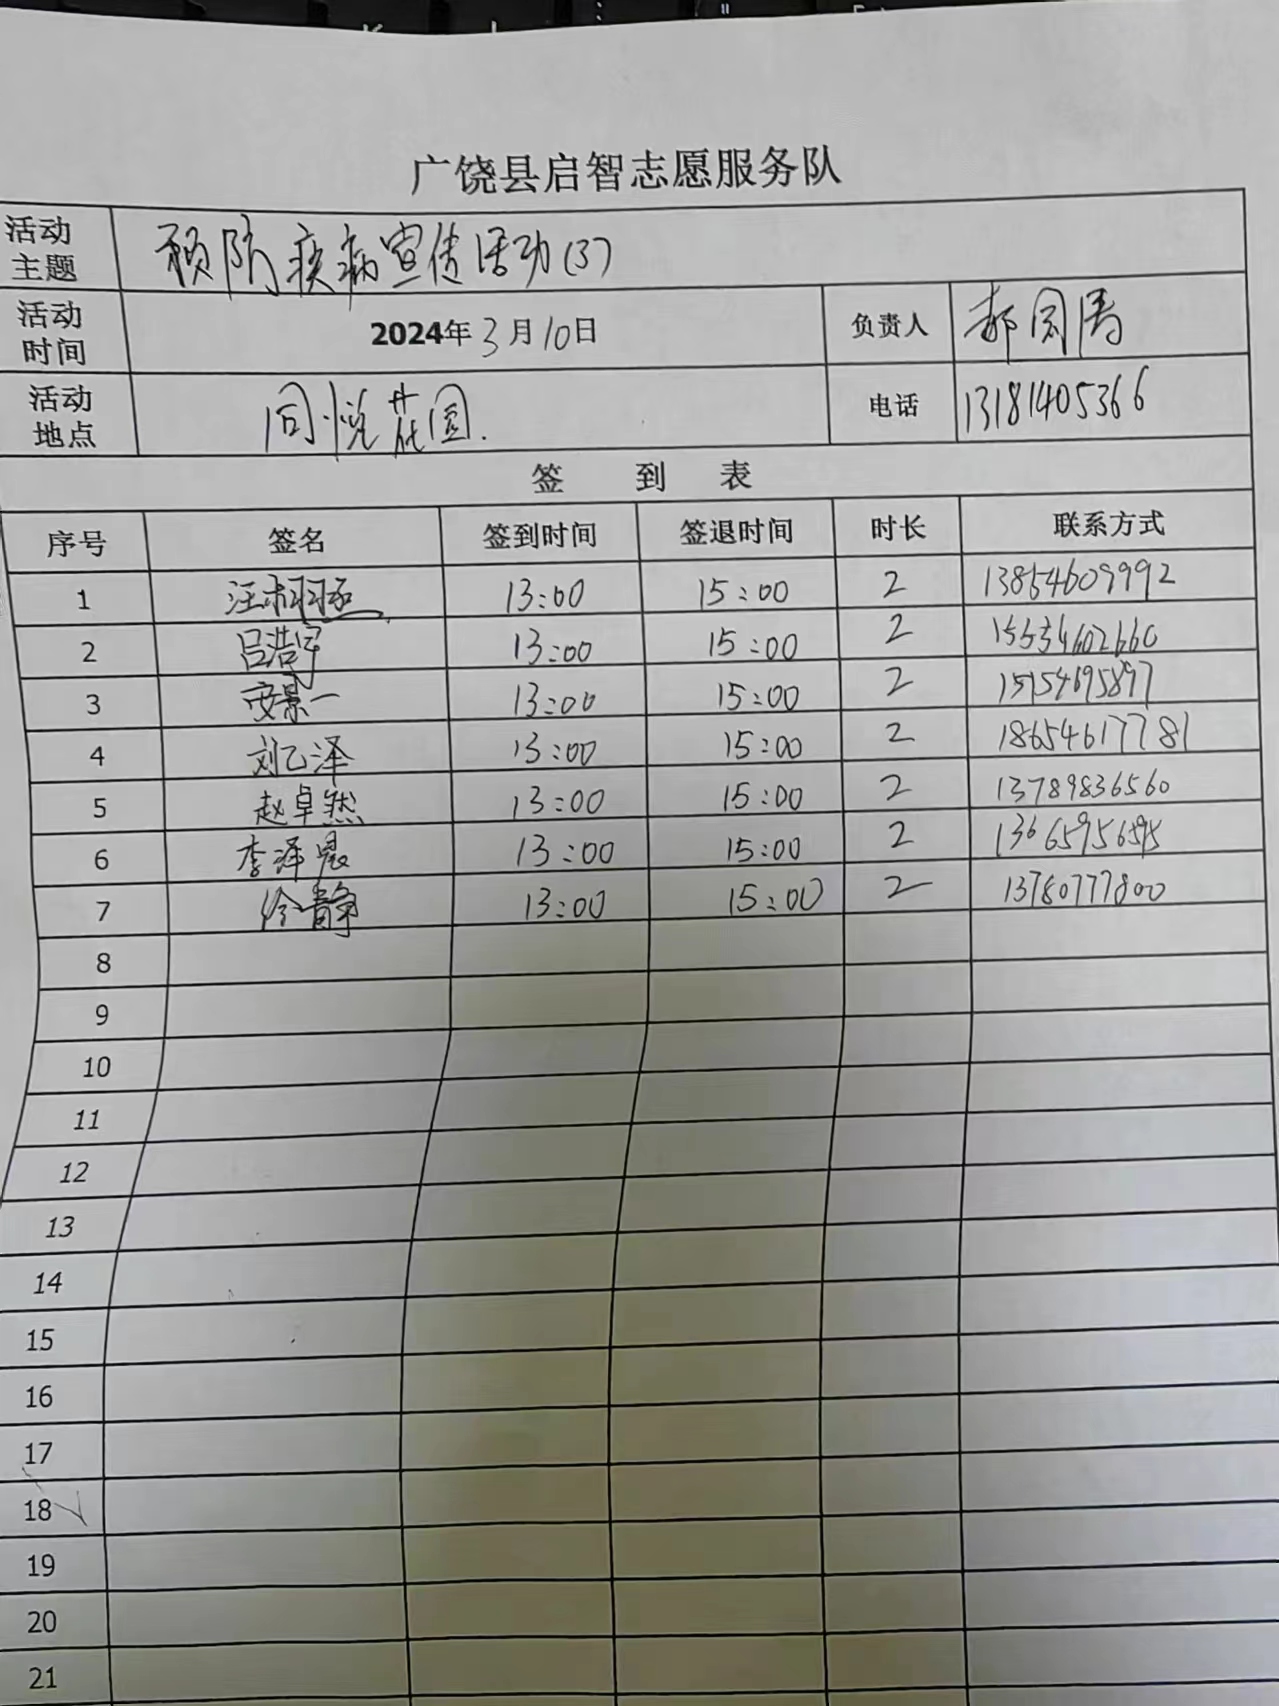 广饶县启智志愿服务队
活动主题 预防疾病宣传活动(3)
活动时间 2024年3月10日 负责人
活动地点 同悦花园. 电话 13181405366
签 到 表
序号 签名 签到时间 签退时间 时长 联系方式
1 13:00 15:00 2 13854609992
2 吕浩宇 13:00 15:00 2
3 安景一 13:00 15:00 2 15154695897
4 刘乙泽 13:00 15:00 2 18654617781
5 赵卓然 13:00 15:00 2 13789836560
6 李泽晨 13:00 15:00 2
7 徐静 13:00 15:00 2 13780777800
8
9
10
11
12
13
14
15
16
17
18
19
20
21